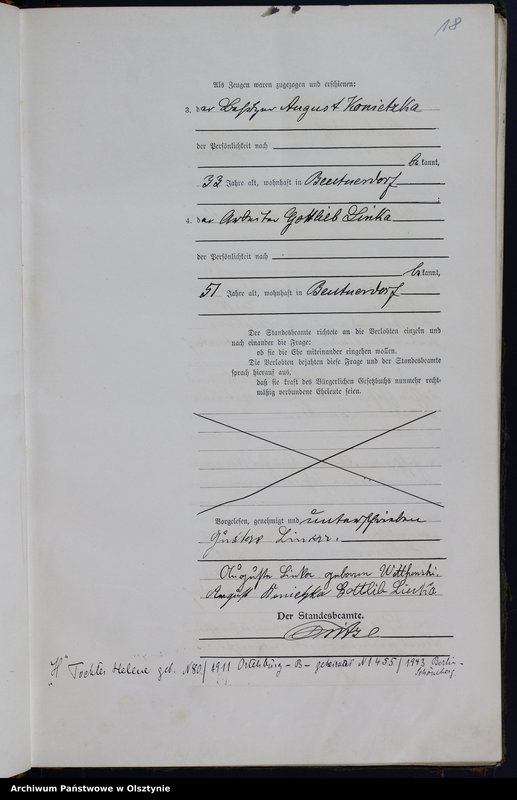 18
Als Zeugen waren zugezogen und erschienen:
3. der Besitzer August Konietzka
der Persönlichkeit nach
bekannt,
33 Jahre alt, wohnhaft in Beutnerdorf
;
4. der Arbeiter Gottlieb Linka
der Persönlichkeit nach
bekannt,
51 Jahre alt, wohnhaft in Beutnerdorf
Der Standesbeamte richtete an die Verlobten einzeln und
nach einander die Frage:
ob sie die Ehe miteinander eingehen wollen.
Die Verlobten bejahten diese Frage und der Standesbeamte
sprach hierauf aus,
daß sie kraft des Bürgerlichen Gesetzbuchs nunmehr recht-
mäßig verbundene Eheleute seien.
Vorgelesen, genehmigt und unterschrieben
Gustav Linka.
Auguste Linka geboren
August Konietzka Gottlieb Linka
Der Standesbeamte.
"H" Tochter Helene geb. N80/1911 Ortelsburg - B - geheiratet N1455/1943 Berlin-
Schöneberg.
Archiwum Państwowe w Olsztynie